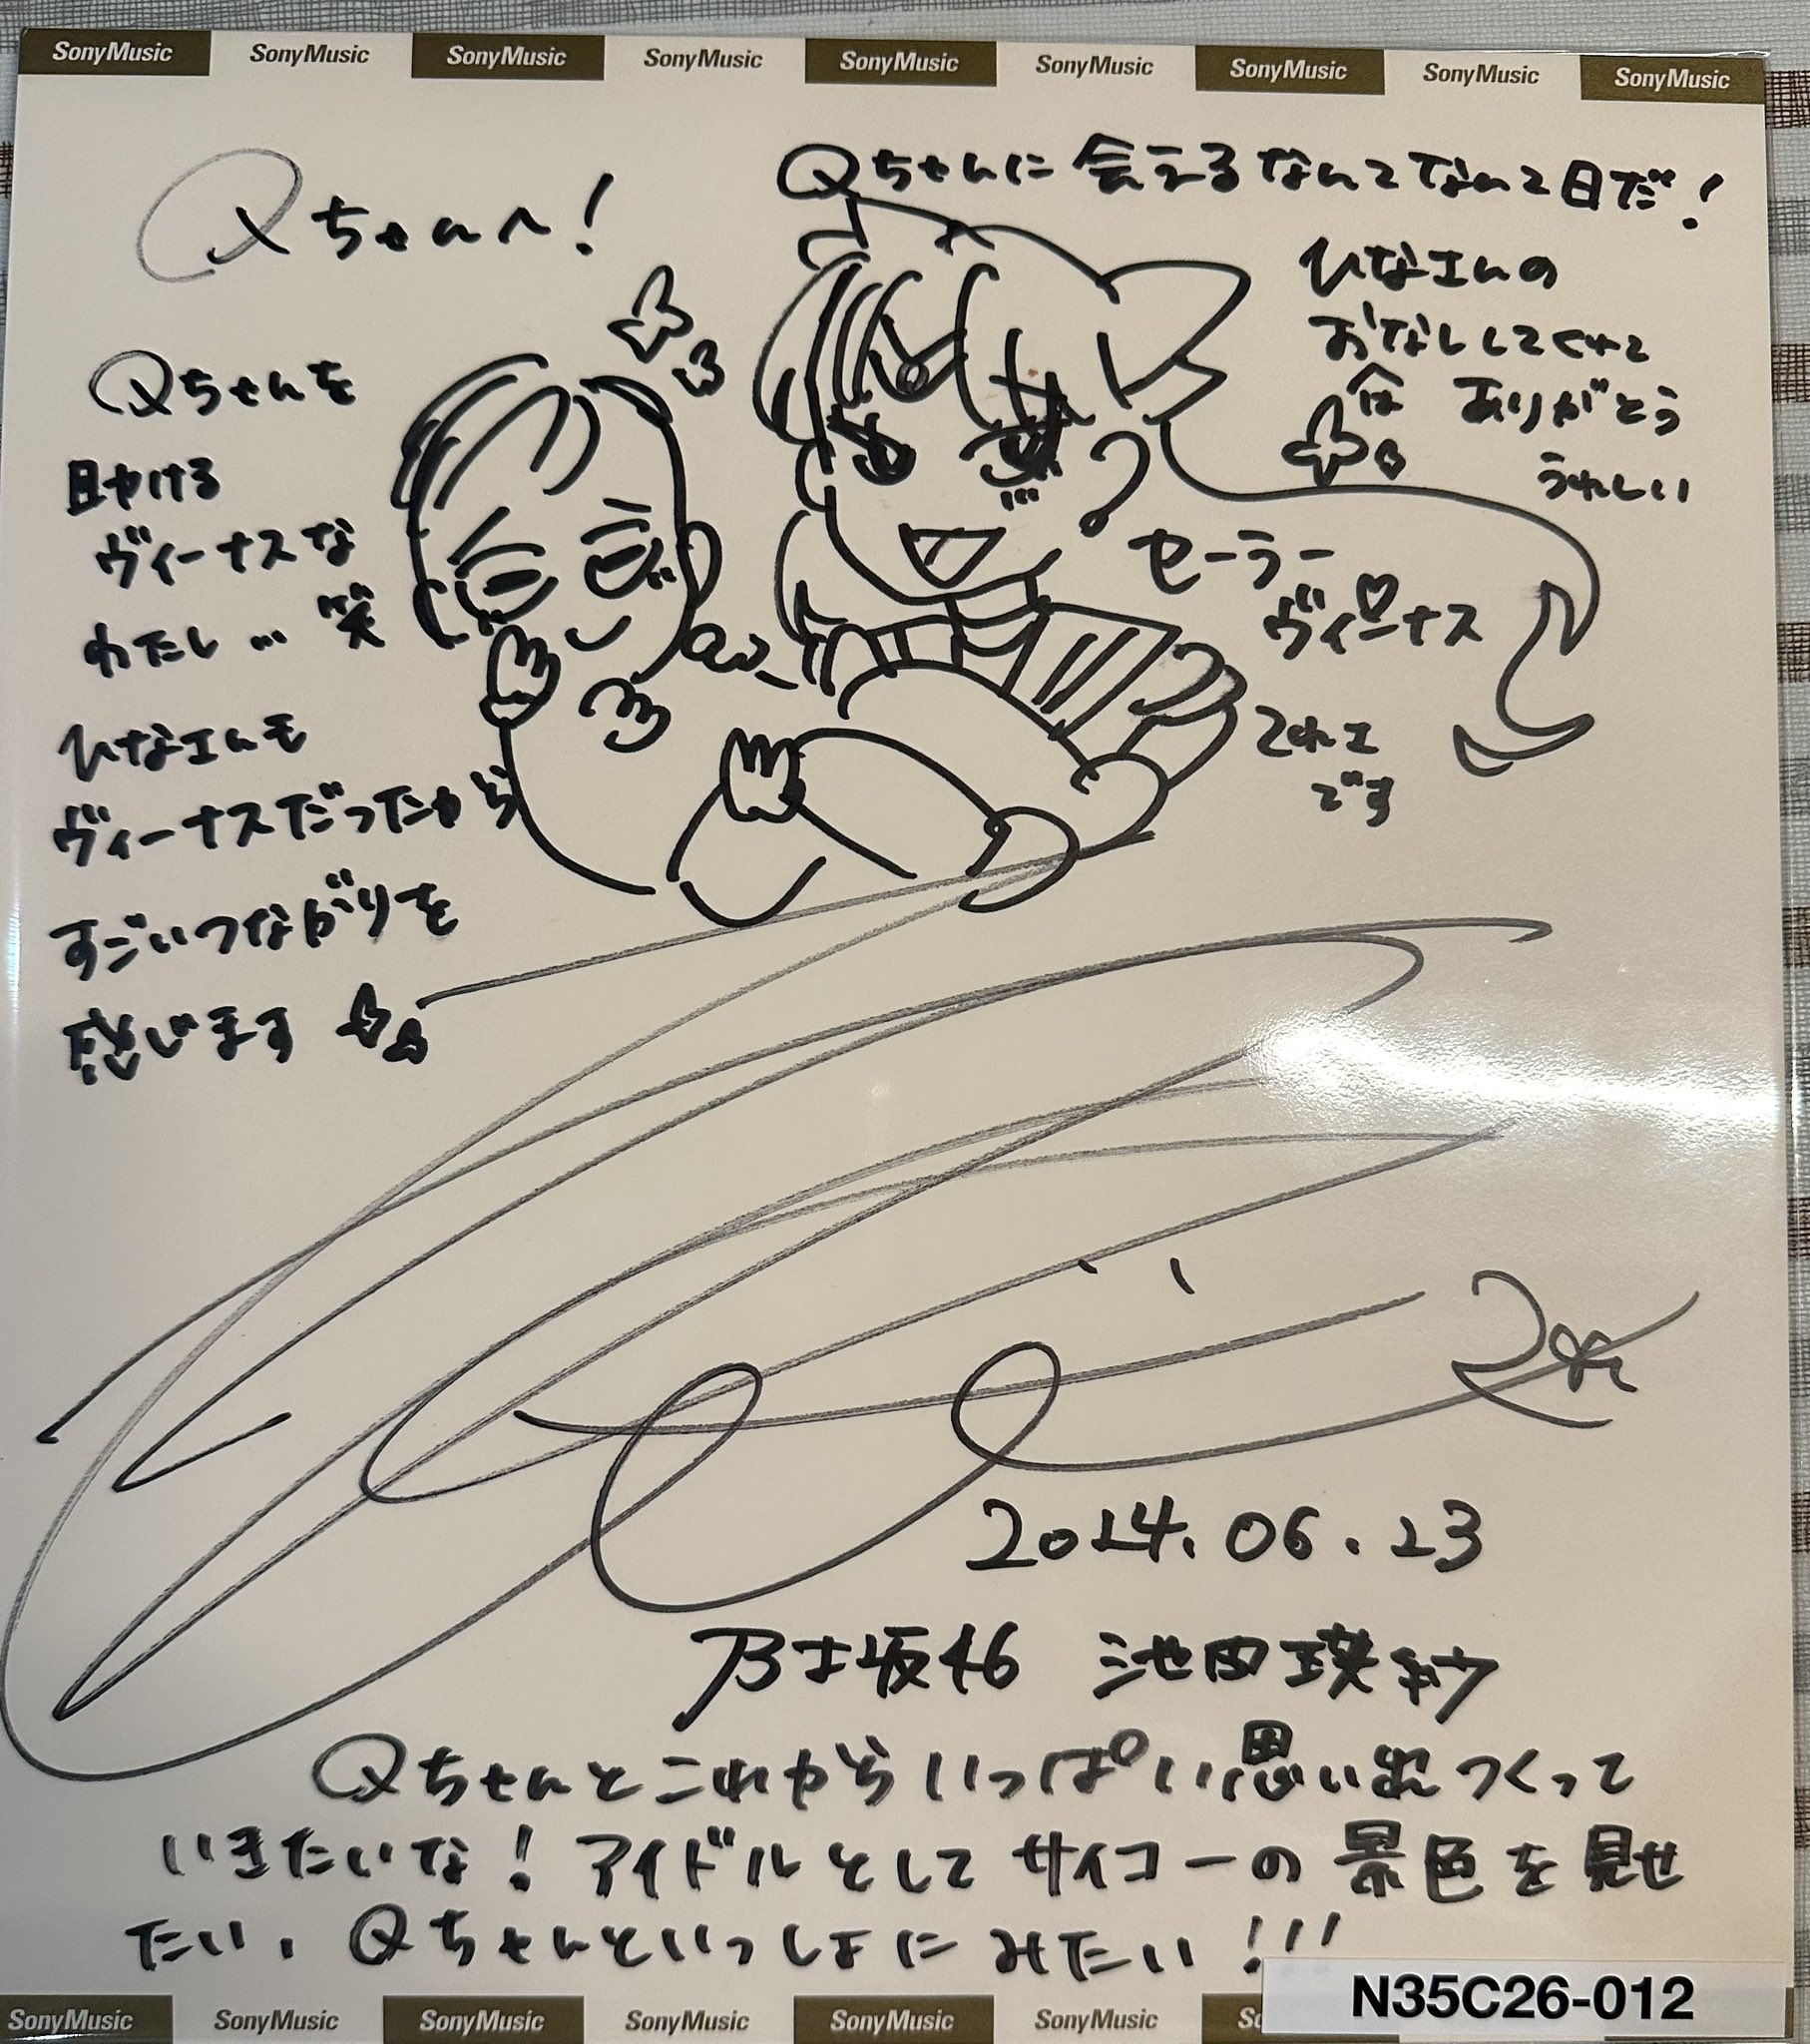 SonyMusic SonyMusic SonyMusic SonyMusic SonyMusic SonyMusic SonyMusic SonyMusic SonyMusic
Qちゃんへ!
Qちゃんに会えるなんてなんて日だ!
ひなエんの
おなししてくれて
ありがとう
うれしい
Qちゃんを
助ける
ヴィーナスな
わたし…笑
ひなエんも
ヴィーナスだったから
すごいつながりを
感じます
セーラー
ヴィーナス
てれエ
です
2024.06.23
乃木坂46 池田瑛紗
Qちゃんとこれからいっぱい思い出つくって
いきたいな!アイドルとしてサイコーの景色を見せ
たい、Qちゃんといっしょにみたい!!!
SonyMusic SonyMusic SonyMusic SonyMusic SonyMusic SonyMusic
N35C26-012